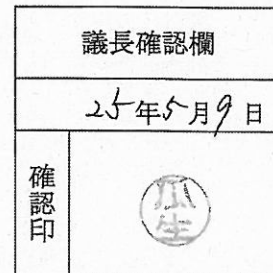 議長確認欄
25年5月9日
確認印
瓜生